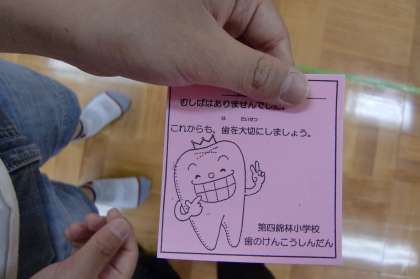 むしばはありませんでした。
は たいせつ
これからも、歯を大切にしましょう。
第四錦林小学校
歯のけんこうしんだん